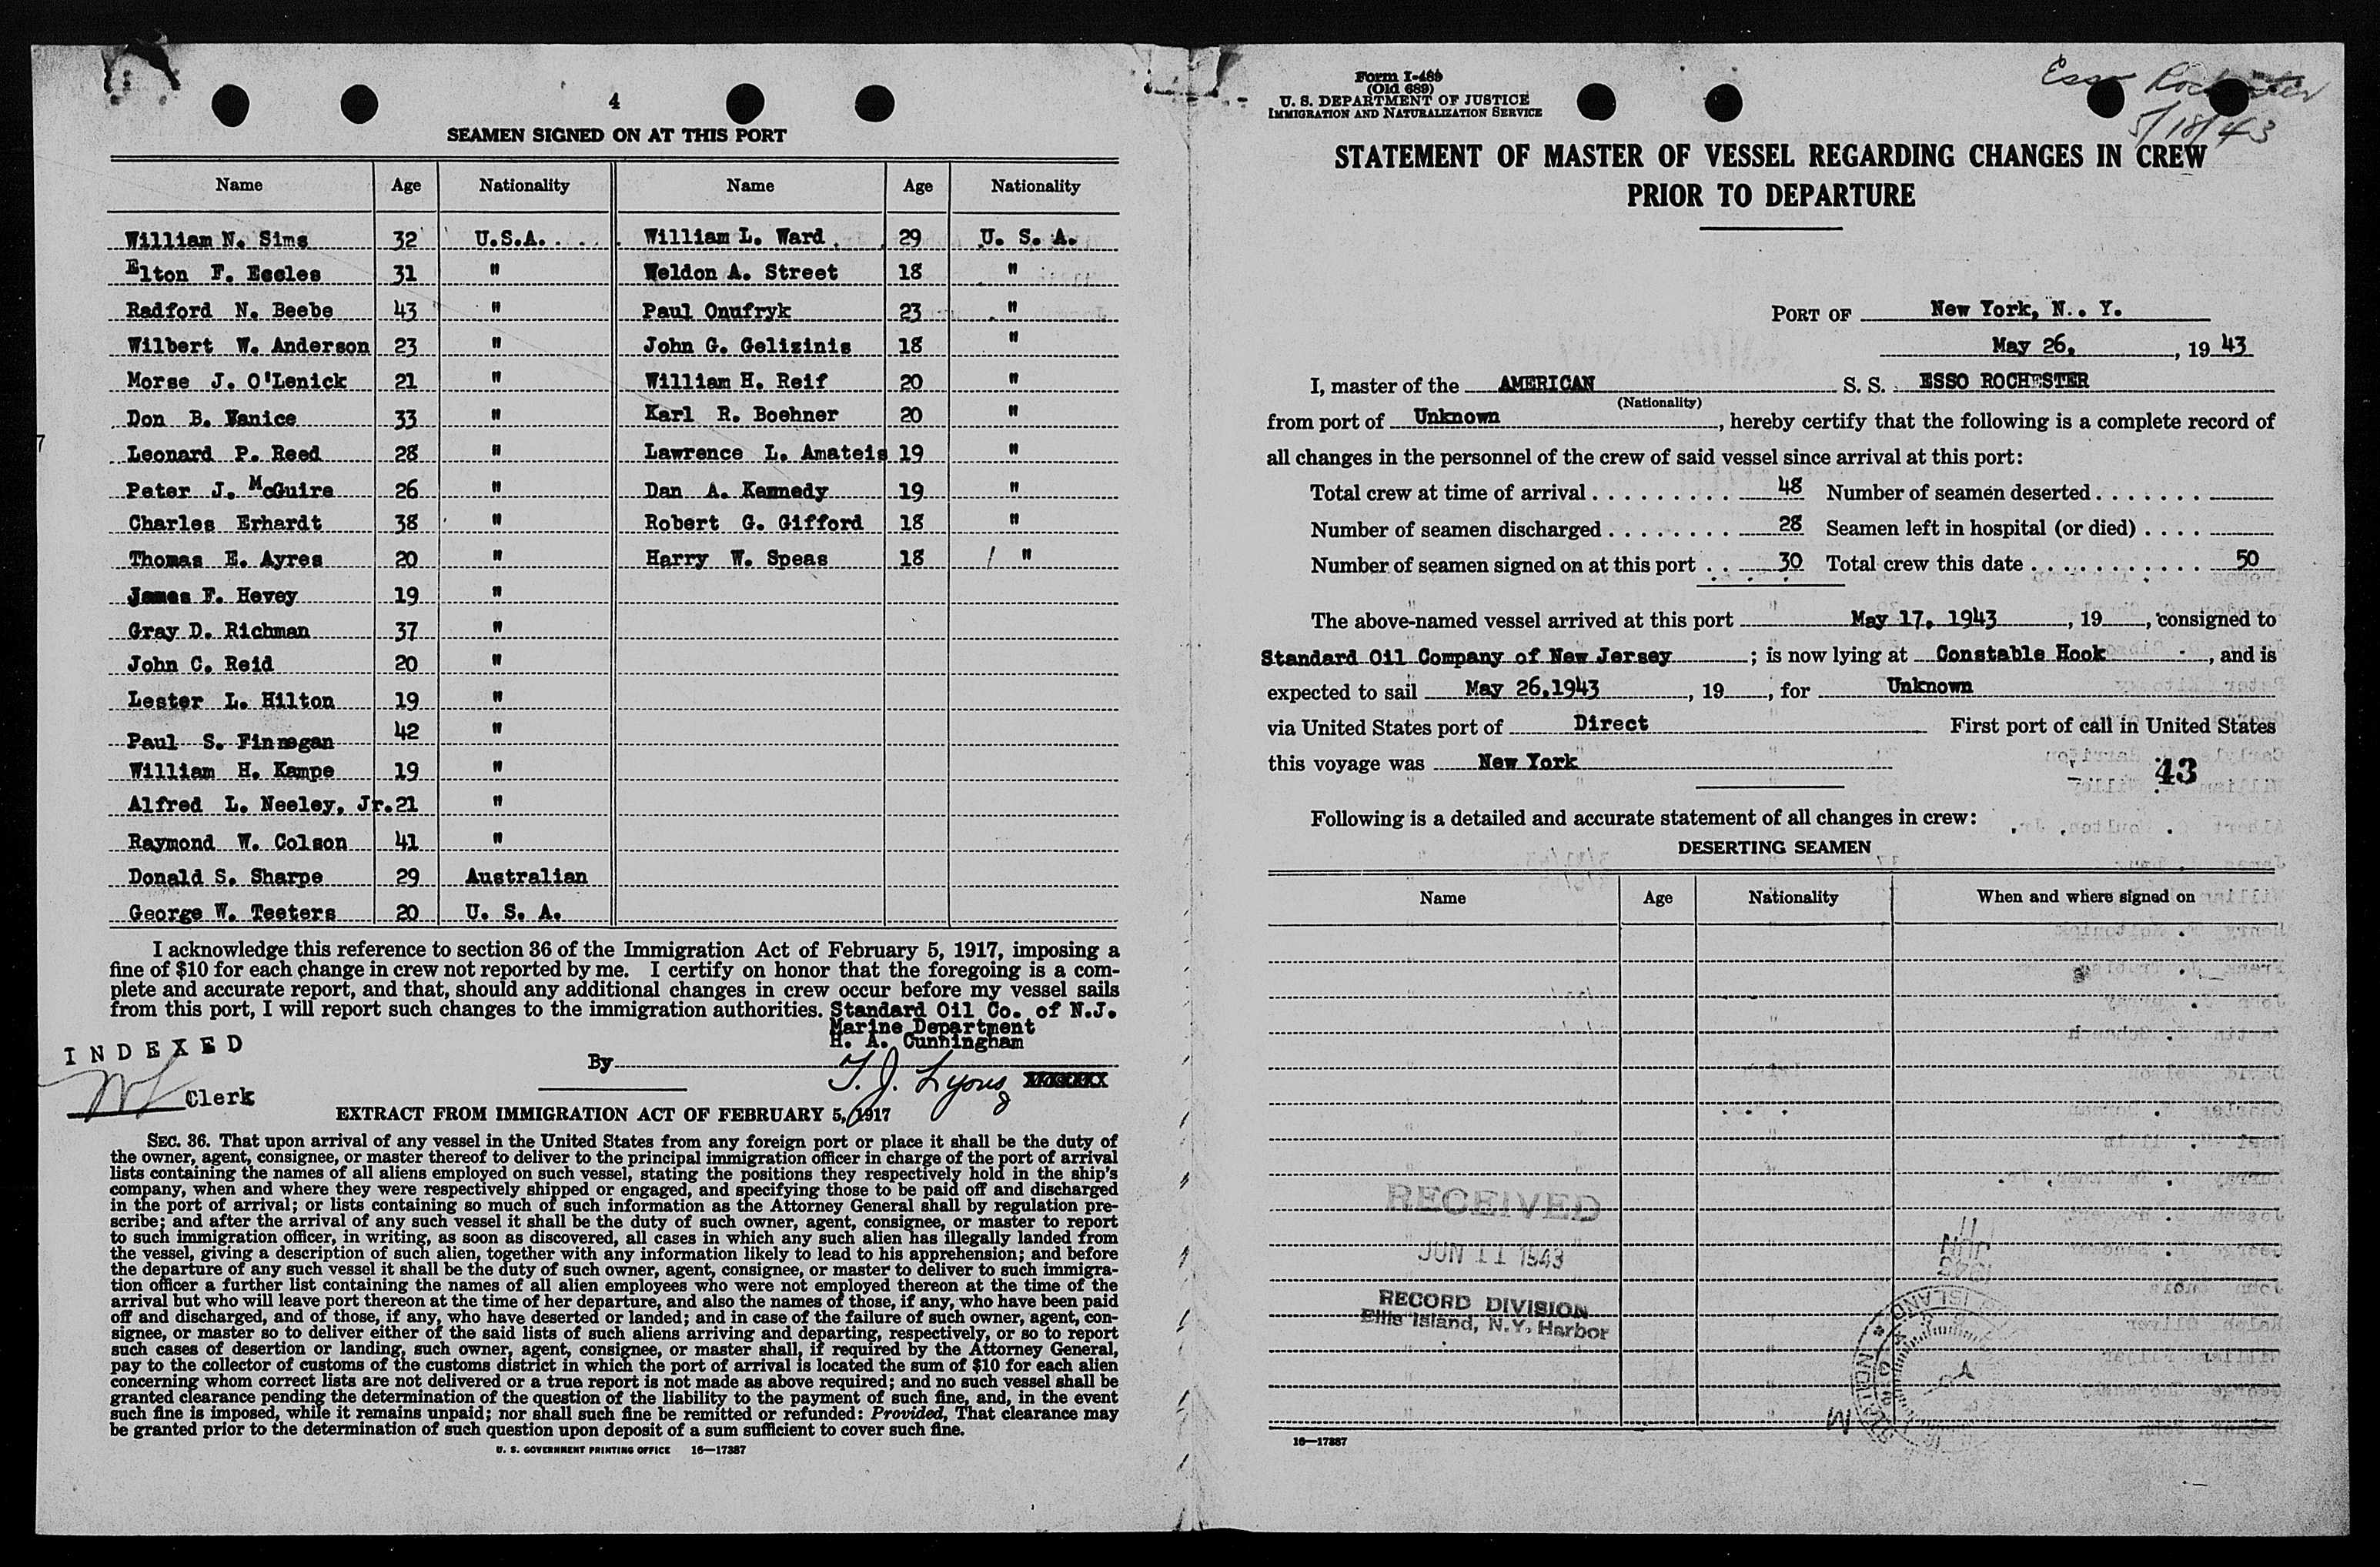 4
SEAMEN SIGNED ON AT THIS PORT
Name Age Nationality Name Age Nationality
William N. Sims 32 U.S.A. William L. Ward 29 U. S. A.
Elton F. Eccles 31 " Weldon A. Street 18 "
Radford N. Beebe 43 " Paul Onufryk 23 "
Wilbert W. Anderson 23 " John G. Gelizinis 18 "
Morse J. O'Lenick 21 " William H. Reif 20 "
Don B. Wanice 33 " Karl R. Boehner 20 "
Leonard P. Reed 28 " Lawrence L. Amateis 19 "
Peter J. McGuire 26 " Dan A. Kennedy 19 "
Charles Erhardt 38 " Robert G. Gifford 18 "
Thomas E. Ayres 20 " Harry W. Speas 18 "
James F. Hevey 19 "
Gray D. Richman 37 "
John C. Reid 20 "
Lester L. Hilton 19 "
Paul S. Finnegan 42 "
William H. Kampe 19 "
Alfred L. Neeley, Jr. 21 "
Raymond W. Colson 41 "
Donald S. Sharpe 29 Australian
George W. Teeters 20 U. S. A.
I acknowledge this reference to section 36 of the Immigration Act of February 5, 1917, imposing a
fine of $10 for each change in crew not reported by me. I certify on honor that the foregoing is a com-
plete and accurate report, and that, should any additional changes in crew occur before my vessel sails
from this port, I will report such changes to the immigration authorities. Standard Oil Co. of N.J.
Marine Department
H. A. Cunningham
INDEXED
By T. J. Lyons
Clerk
EXTRACT FROM IMMIGRATION ACT OF FEBRUARY 5, 1917
SEC. 36. That upon arrival of any vessel in the United States from any foreign port or place it shall be the duty of
the owner, agent, consignee, or master thereof to deliver to the principal immigration officer in charge of the port of arrival
lists containing the names of all aliens employed on such vessel, stating the positions they respectively hold in the ship's
company, when and where they were respectively shipped or engaged, and specifying those to be paid off and discharged
in the port of arrival; or lists containing so much of such information as the Attorney General shall by regulation pre-
scribe; and after the arrival of any such vessel it shall be the duty of such owner, agent, consignee, or master to report
to such immigration officer, in writing, as soon as discovered, all cases in which any such alien has illegally landed from
the vessel, giving a description of such alien, together with any information likely to lead to his apprehension; and before
the departure of any such vessel it shall be the duty of such owner, agent, consignee, or master to deliver to such immigra-
tion officer a further list containing the names of all alien employees who were not employed thereon at the time of the
arrival but who will leave port thereon at the time of her departure, and also the names of those, if any, who have been paid
off and discharged, and of those, if any, who have deserted or landed; and in case of the failure of such owner, agent, con-
signee, or master so to deliver either of the said lists of such aliens arriving and departing, respectively, or so to report
such cases of desertion or landing, such owner, agent, consignee, or master shall, if required by the Attorney General,
pay to the collector of customs of the customs district in which the port of arrival is located the sum of $10 for each alien
concerning whom correct lists are not delivered or a true report is not made as above required; and no such vessel shall be
granted clearance pending the determination of the question of the liability to the payment of such fine, and, in the event
such fine is imposed, while it remains unpaid; nor shall such fine be remitted or refunded: Provided, That clearance may
be granted prior to the determination of such question upon deposit of a sum sufficient to cover such fine.
U. S. GOVERNMENT PRINTING OFFICE 16—17387
Form I-489
(Old 689)
U. S. DEPARTMENT OF JUSTICE
IMMIGRATION AND NATURALIZATION SERVICE
Esso Rochester
5/18/43
STATEMENT OF MASTER OF VESSEL REGARDING CHANGES IN CREW
PRIOR TO DEPARTURE
PORT OF New York, N. Y.
May 26, , 19 43
I, master of the AMERICAN S. S. ESSO ROCHESTER
(Nationality)
from port of Unknown , hereby certify that the following is a complete record of
all changes in the personnel of the crew of said vessel since arrival at this port:
Total crew at time of arrival . . . . . . . . . . 48 Number of seamen deserted . . . . . . .
Number of seamen discharged . . . . . . . . . 28 Seamen left in hospital (or died) . . . .
Number of seamen signed on at this port . . 30 Total crew this date . . . . . . . . . . . . 50
The above-named vessel arrived at this port May 17, 1943 , 19 , consigned to
Standard Oil Company of New Jersey ; is now lying at Constable Hook , and is
expected to sail May 26,1943 , 19 , for Unknown
via United States port of Direct First port of call in United States
this voyage was New York
43
Following is a detailed and accurate statement of all changes in crew:
DESERTING SEAMEN
Name Age Nationality When and where signed on
RECEIVED
JUN 11 1943
RECORD DIVISION
Ellis Island, N.Y. Harbor
16—17387